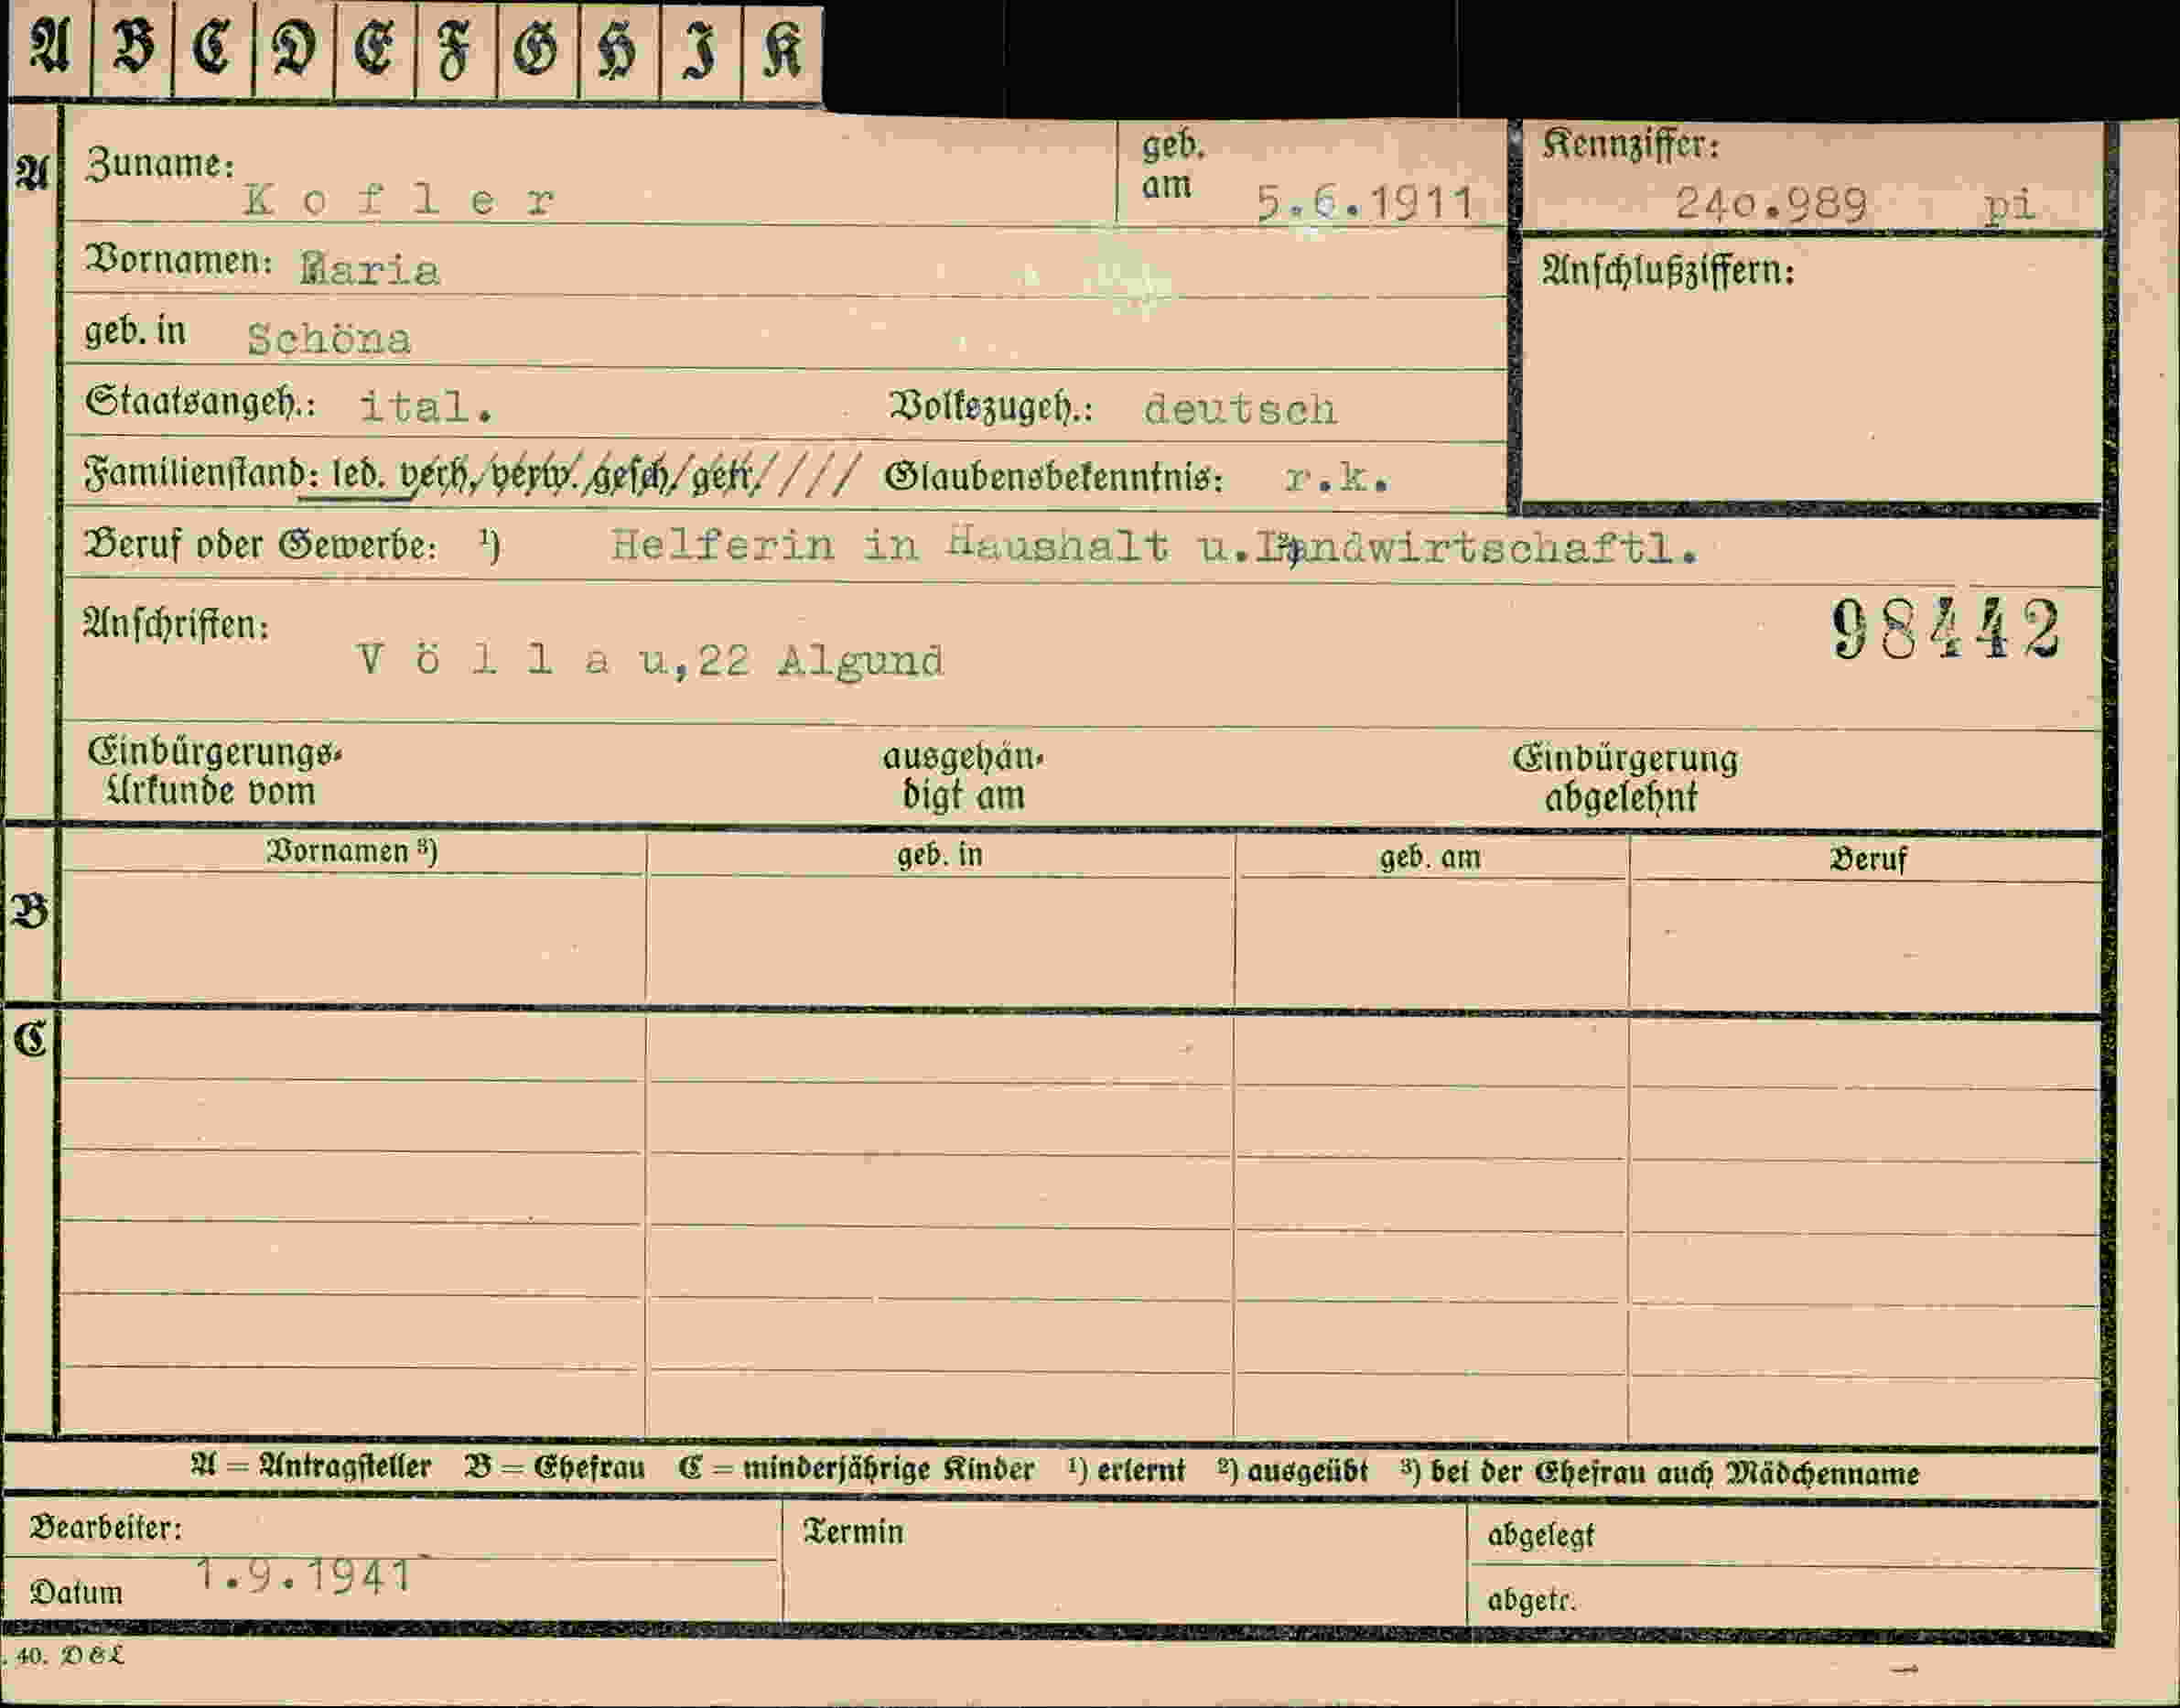 A B C D E F G H I K
A
Zuname: Kofler
geb. am 5.6.1911
Kennziffer: 24o.989 pi
Vornamen: Maria
Anschlußziffern:
geb. in Schöna
Staatsangeh.: ital. Volkszugeh.: deutsch
Familienstand: led. verh. verw. gesch. getr. Glaubensbekenntnis: r.k.
Beruf oder Gewerbe: ¹) Helferin in Haushalt u. Landwirtschaftl.
Anschriften: Völlau, 22 Algund
98442
Einbürgerungs-Urkunde vom
ausgehändigt am
Einbürgerung abgelehnt
B
Vornamen ³) geb. in geb. am Beruf
C
A = Antragsteller B = Ehefrau C = minderjährige Kinder ¹) erlernt ²) ausgeübt ³) bei der Ehefrau auch Mädchenname
Bearbeiter:
Termin
abgelegt
Datum 1.9.1941
abgetr.
. 40. D&L